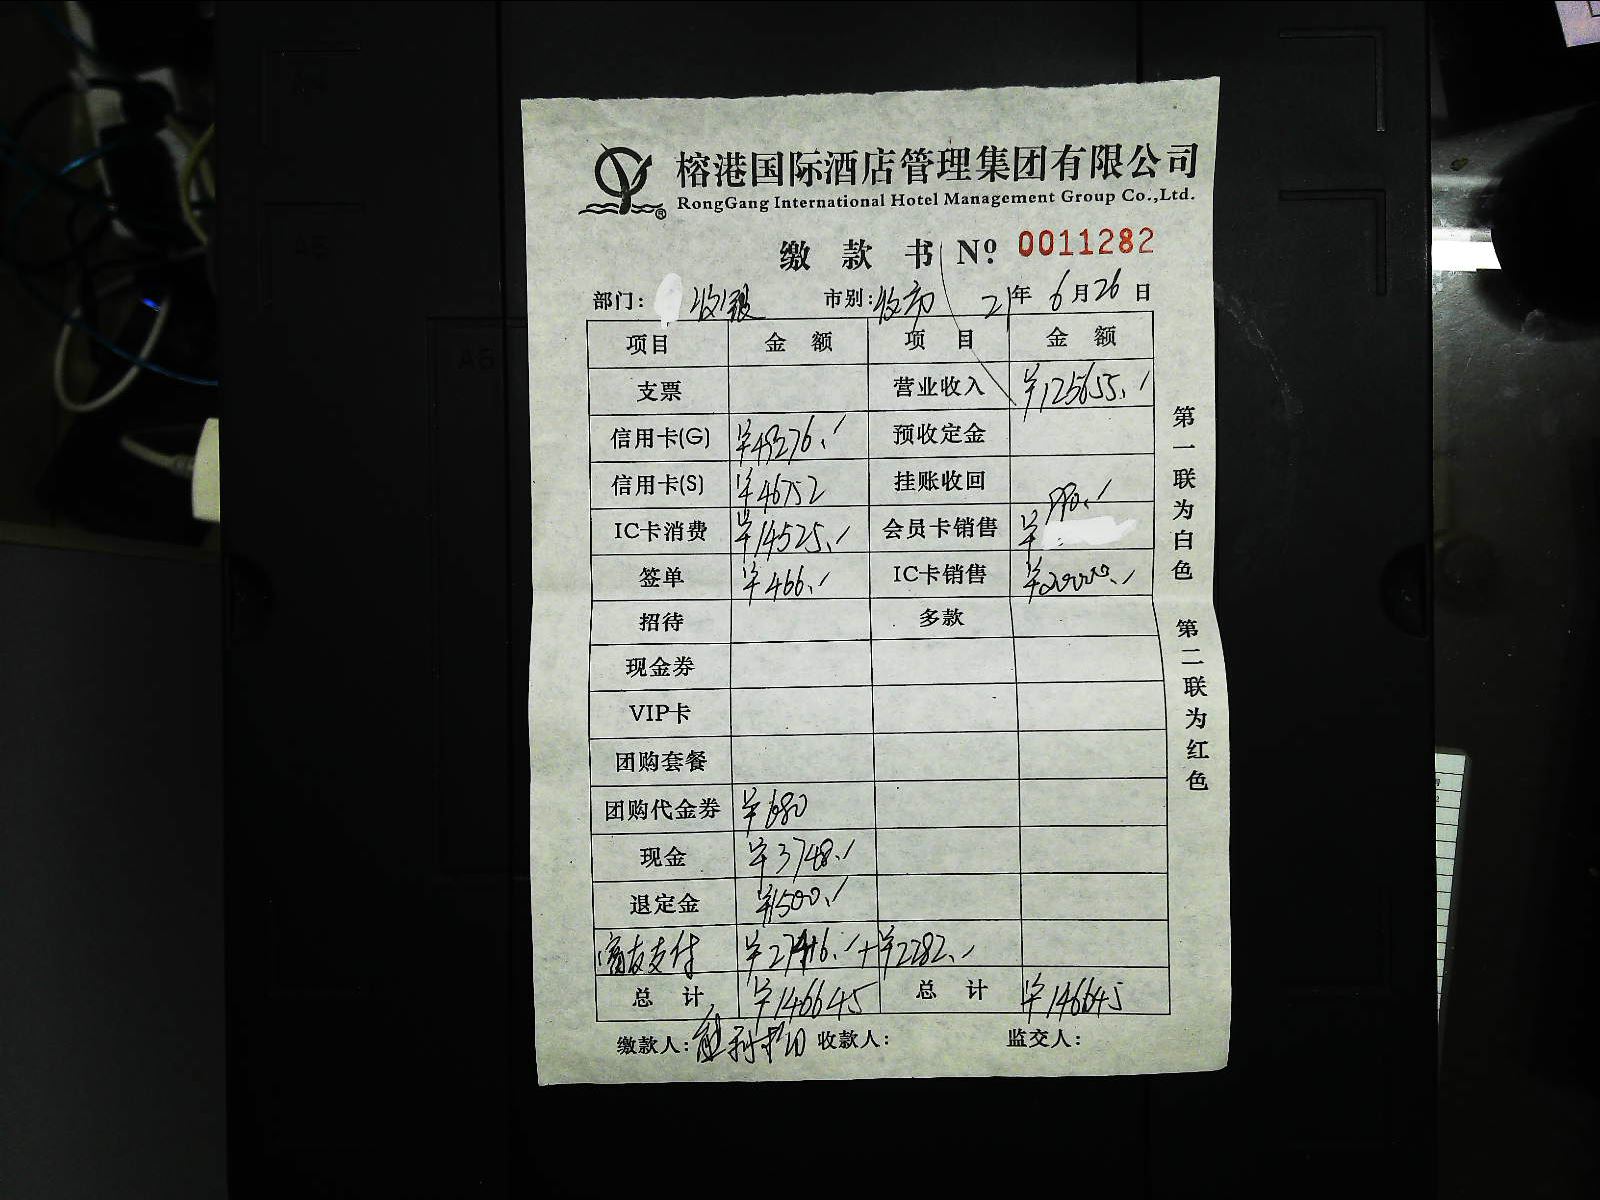 榕港国际酒店管理集团有限公司
RongGang International Hotel Management Group Co.,Ltd.
®
缴 款 书 Nº. 0011282
部门: 收银 市别: 收市 21年 6月26日
项目 金 额 项 目 金 额
支票 营业收入 ¥125655.-
信用卡(G) ¥49276.- 预收定金
信用卡(S) ¥46752 挂账收回
IC卡消费 ¥14525.- 会员卡销售 ¥990.-
签单 ¥466.- IC卡销售 ¥20000.-
招待 多款
现金券
VIP卡
团购套餐
团购代金券 ¥680
现金 ¥3748.-
退定金 ¥1500.-
商友支付 ¥27416.- + ¥2282.-
总 计 ¥146645 总 计 ¥146645
缴款人: 收款人: 监交人:
第一联为白色 第二联为红色
A5
A6